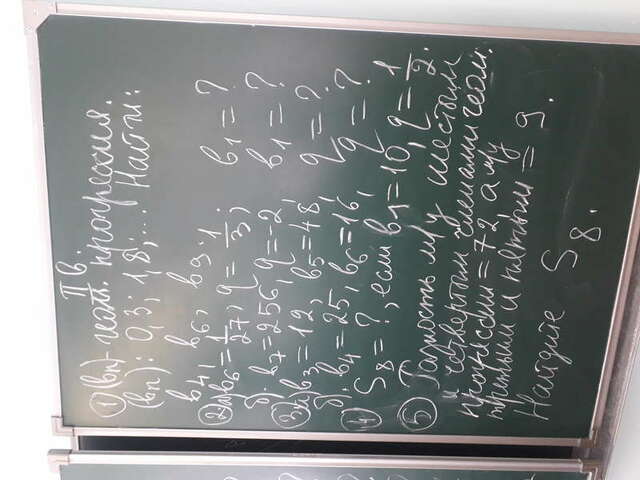 II в.
① (bn)- геом. прогрессия.
(bn): 0,3; 1,8;... Найти:
b4, b6, b9.
② а) b6 = 1/27, q = 1/3; b1 = ?
б). b7 = 256, q = -2, b1 = ?
③ а). b3 = 12, b5 = 48, q = ?
б). b4 = 25, b6 = 16, q = ?
④ S8 = ?, если b1 = 10, q = 1/2.
⑤ Разность м/у шестым
и четвертым членами геом.
прогрессии = 72, а м/у
третьим и пятым = 9.
Найдите S8.